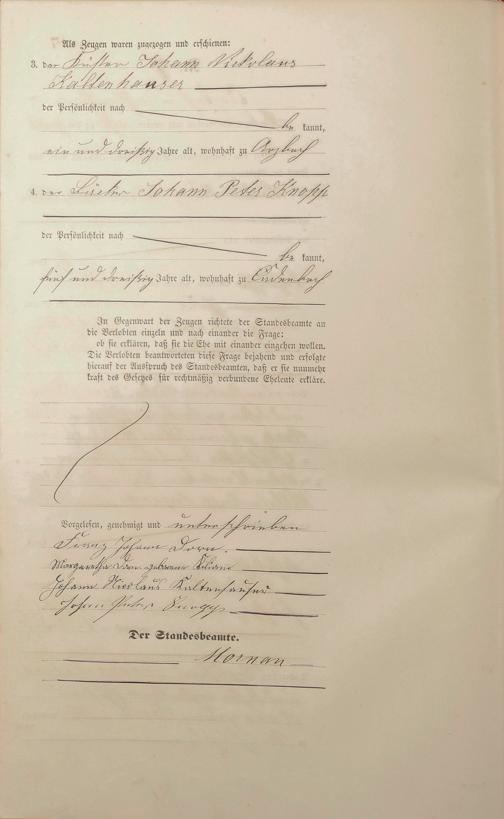 Als Zeugen waren zugezogen und erschienen:
3. der Küster Johann Nickolaus
Kaltenhauser
der Persönlichkeit nach
be kannt,
ein und dreißig Jahre alt, wohnhaft zu Arzbach
4. der Johann Peter Knopp
der Persönlichkeit nach
be kannt,
fünf und dreißig Jahre alt, wohnhaft zu Cadenbach
In Gegenwart der Zeugen richtete der Standesbeamte an
die Verlobten einzeln und nach einander die Frage:
ob sie erklären, daß sie die Ehe mit einander eingehen wollen.
Die Verlobten beantworteten diese Frage bejahend und erfolgte
hierauf der Ausspruch des Standesbeamten, daß er sie nunmehr
kraft des Gesetzes für rechtmäßig verbundene Eheleute erkläre.
Vorgelesen, genehmigt und unterschrieben
Franz Johann Dorn.
Margaretha Dorn geborene
Johann Nicolaus Kaltenhauser
Johann Peter Knopp
Der Standesbeamte.
Mornau